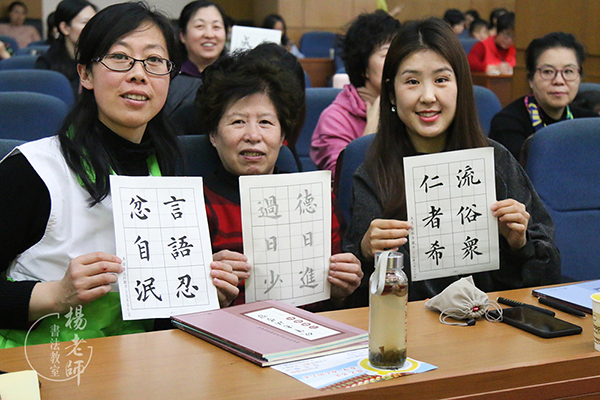 言語忍
忿自泯
德日進
過日少
流俗衆
仁者希
楊老師
書法教室